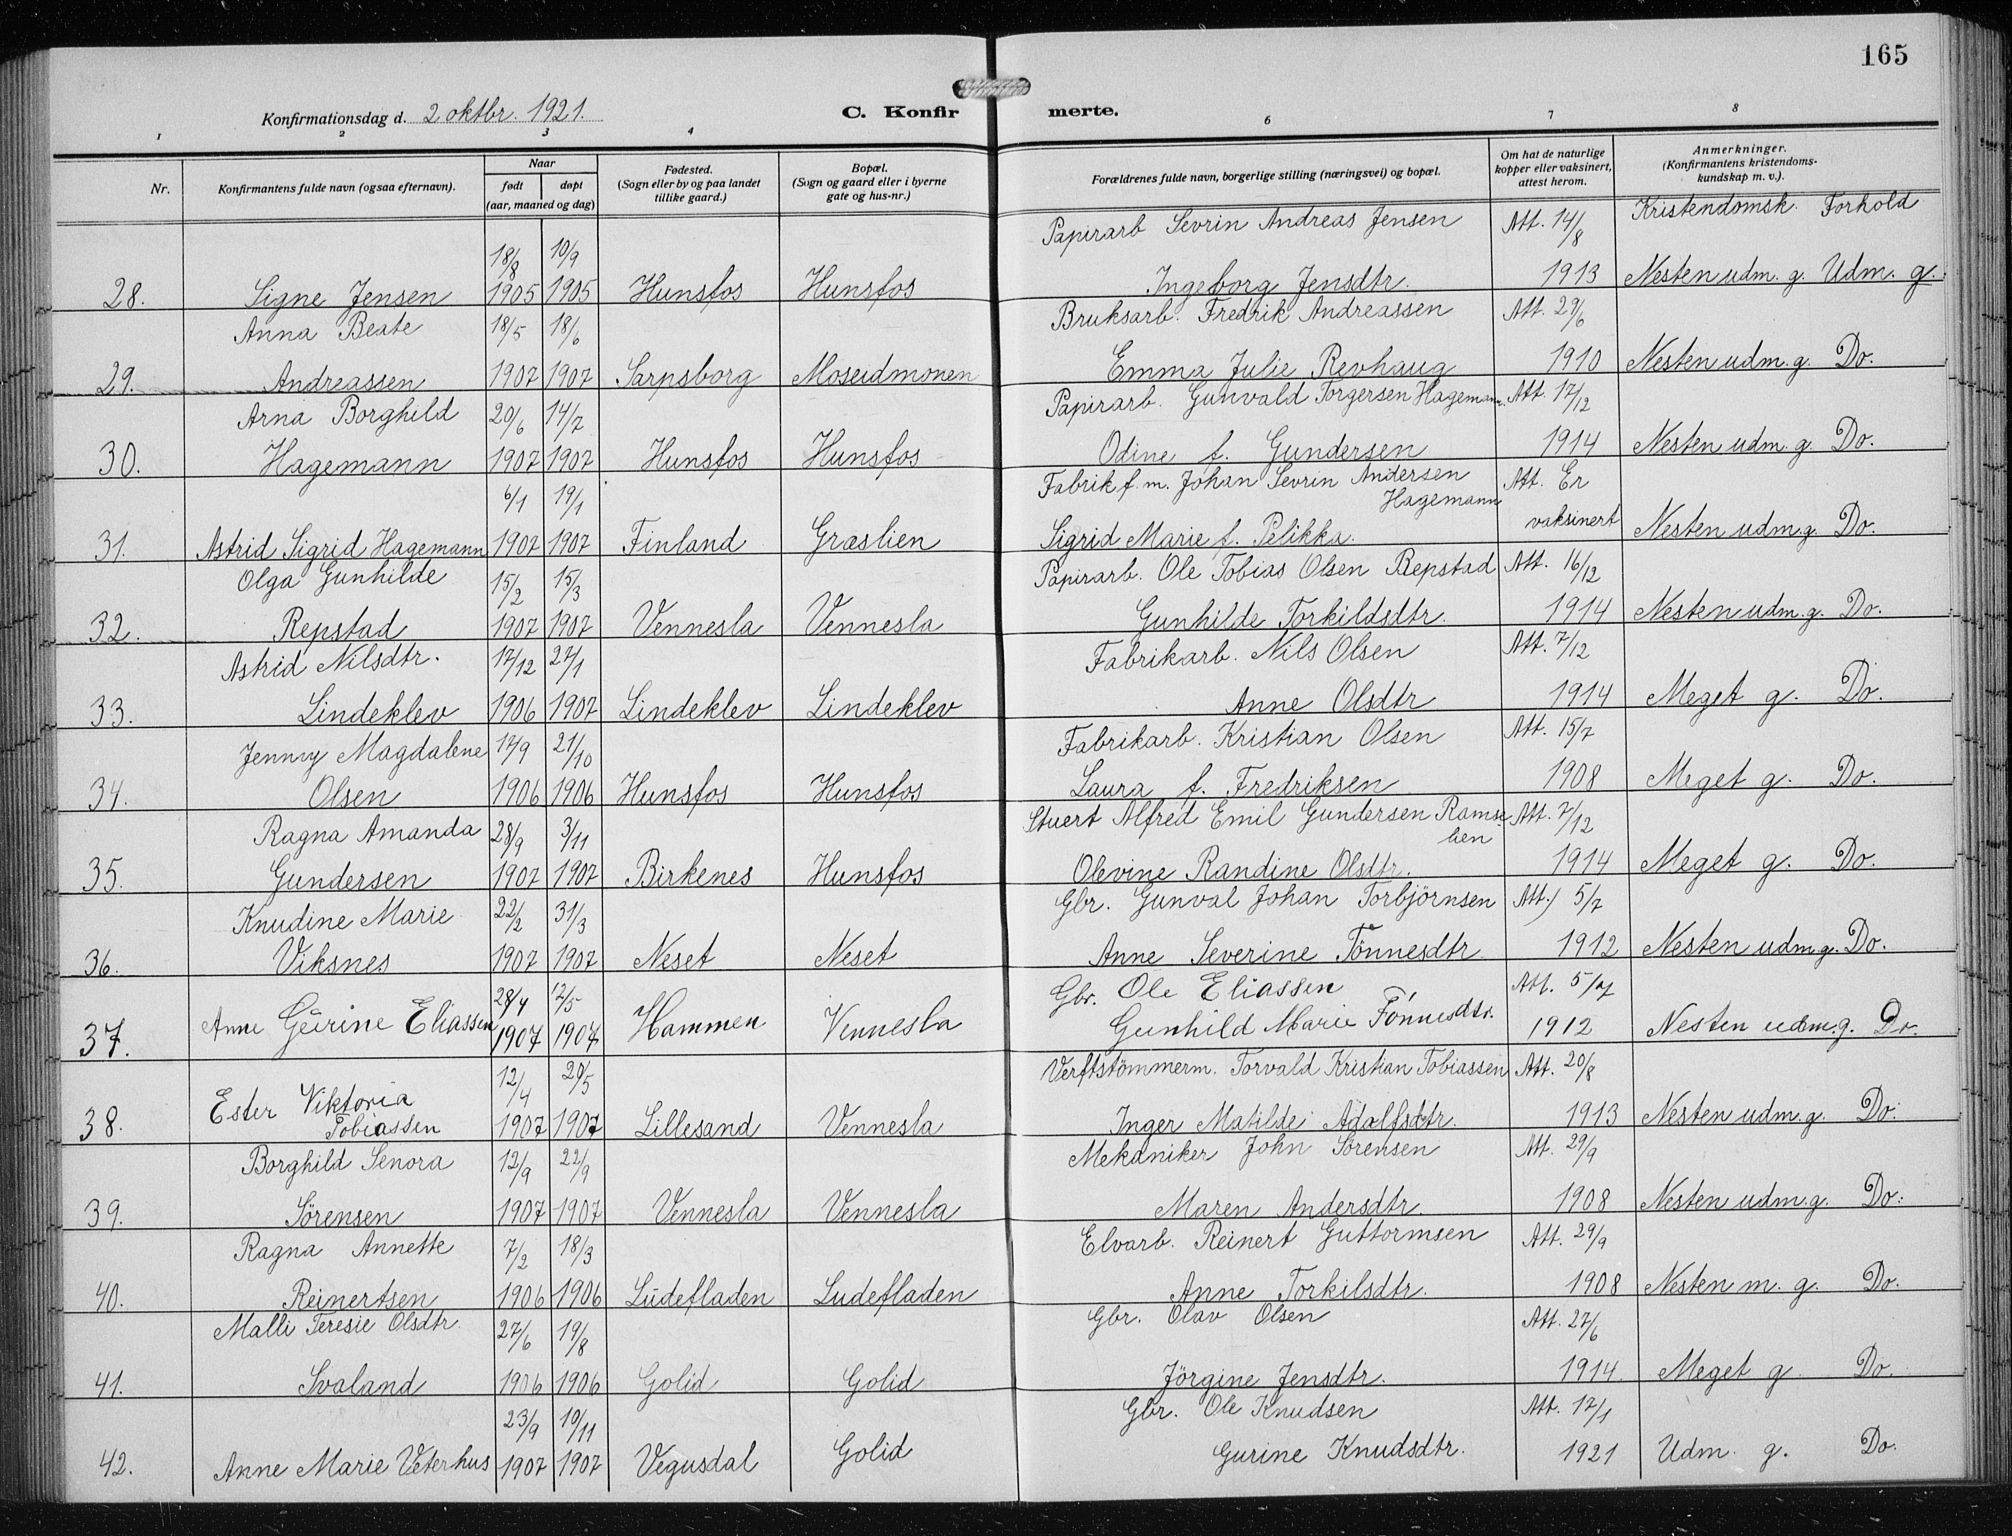 165
Konfirmationsdag d. 2 oktbr. 1921.
C. Konfirmerte.
1 2 3 4 6 7 8
Nr.
Konfirmantens fulde navn (ogsaa efternavn).
Naar
født døpt
(aar, maaned og dag)
Fødested.
(Sogn eller by og paa landet
tillike gaard.)
Bopæl.
(Sogn og gaard eller i byerne
gate og hus-nr.)
Forældrenes fulde navn, borgerlige stilling (næringsvei) og bopæl.
Om hat de naturlige
kopper eller vaksinert,
attest herom.
Anmerkninger.
(Konfirmantens kristendoms-
kundskap m. v.).
Kristendomsk. Forhold
18/8 10/9 Papirarb Sevrin Andreas Jensen Att. 14/8
28. Signe Jensen 1905 1905 Hunsfos Hunsfos Ingeborg Jensdtr. 1913 Nesten udm. g. Udm. g.
Anna Beate 18/5 18/6 Bruksarb. Fredrik Andreassen Att. 29/6
29. Andreassen 1907 1907 Sarpsborg Moseidmonen Emma Julie Revhaug 1910 Nesten udm. g. Do.
Arna Borghild 20/6 14/7 Papirarb. Gunvald Torgersen Hagemann. Att. 17/12
30. Hagemann 1907 1907 Hunsfos Hunsfos Odine f. Gundersen 1914 Nesten udm. g. Do.
6/1 19/1 Fabrik f. m. Johan Sevrin Andersen Att. Er
Hagemann
31. Astrid Sigrid Hagemann 1907 1907 Finland Græslien Sigrid Marie f. Pelikka. vaksinert Nesten udm. g. Do.
Olga Gunhilde 15/2 15/3 Papirarb. Ole Tobias Olsen Repstad Att. 16/12
32. Repstad 1907 1907 Vennesla Vennesla Gunhilde Torkildsdtr. 1914 Nesten udm. g. Do.
Astrid Nilsdtr. 17/12 27/1 Fabrikarb. Nils Olsen Att. 7/12
33. Lindeklev 1906 1907 Lindeklev Lindeklev Anne Olsdtr 1914 Meget g. Do.
Jenny Magdalene 17/9 21/10 Fabrikarb. Kristian Olsen Att. 15/7
34. Olsen 1906 1906 Hunsfos Hunsfos Laura f. Fredriksen 1908 Meget g. Do.
Ragna Amanda 28/9 3/11 Stuert Alfred Emil Gundersen Ramse- Att. 7/12
lien
35. Gundersen 1907 1907 Birkenes Hunsfos Olevine Randine Olsdtr. 1914 Meget g. Do.
Knudine Marie 22/2 31/3 Gbr. Gunval Johan Torbjörnsen Att.) 5/7
36. Viksnes 1907 1907 Neset Neset Anne Severine Tönnesdtr. 1912 Nesten udm. g. Do.
28/4 12/5 Gbr. Ole Eliassen Att. 5/7
37. Anne Gúrine Eliassen 1907 1907 Hammen Vennesla Gunhild Marie Tönnesdtr. 1912 Nesten udm. g. Do.
12/4 20/5 Verftstömmerm. Torvald Kristian Tobiassen Att. 20/8
38. Ester Viktoria
Tobiassen 1907 1907 Lillesand Vennesla Inger Matilde Adolfsdtr. 1913 Nesten udm. g. Do.
Borghild Senora 12/9 22/9 Mekaniker John Sörensen Att. 29/9
39. Sörensen 1907 1907 Vennesla Vennesla Maren Andersdtr 1908 Nesten udm. g. Do.
Ragna Annette 7/2 18/3 Elvarb. Reinert Guttormsen Att. 29/9
40. Reinertsen 1906 1906 Ludefladen Ludefladen Anne Torkilsdtr. 1908 Nesten m. g. Do.
Malli Teresie Olsdtr. 27/6 19/8 Gbr. Olav Olsen Att. 27/6
41. Svaland 1906 1906 Golid Golid Jörgine Jensdtr. 1914 Meget g Do.
23/9 10/11 Gbr. Ole Knudsen Att. 17/1
42. Anne Marie Veterhus 1907 1907 Vegusdal Golid Gurine Knudsdtr. 1921 Udm. g. Do.